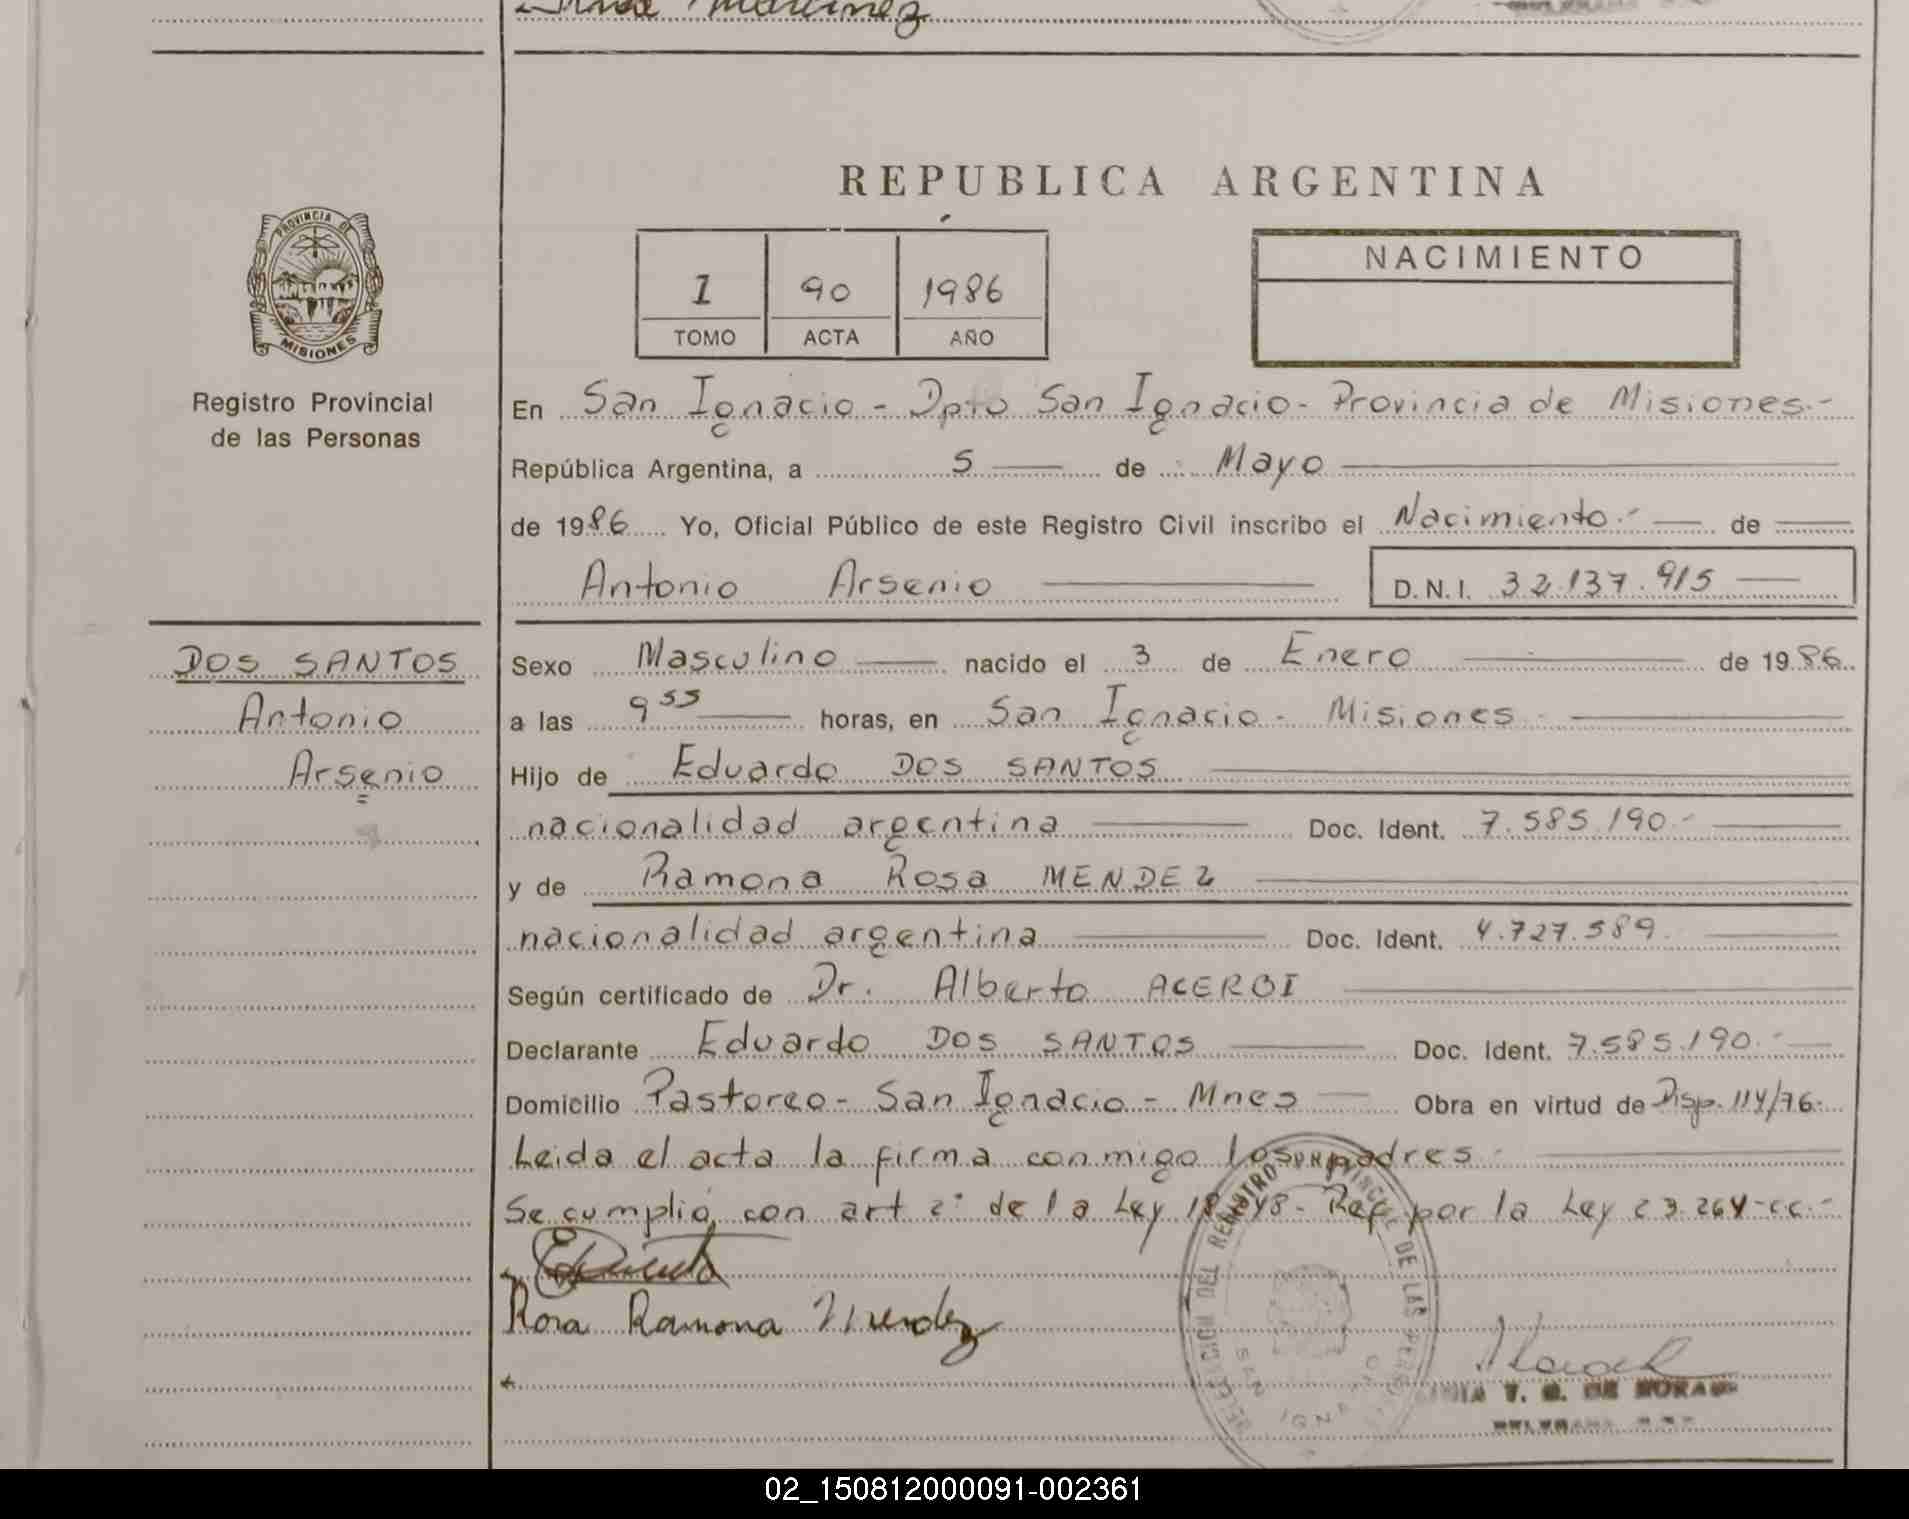 Martinez
REPUBLICA ARGENTINA
PROVINCIA DE
MISIONES
NACIMIENTO
1 90 1986
TOMO ACTA AÑO
Registro Provincial
de las Personas
En San Ignacio - Dpto San Ignacio - Provincia de Misiones.-
República Argentina, a 5 de Mayo
de 1986 Yo, Oficial Público de este Registro Civil inscribo el Nacimiento.- de
Antonio Arsenio D.N.I. 32.137.915
DOS SANTOS
Antonio
Arsenio
Sexo Masculino nacido el 3 de Enero de 1986
a las 9 55 horas, en San Ignacio - Misiones
Hijo de Eduardo DOS SANTOS
nacionalidad argentina Doc. Ident. 7.585.190.-
y de Ramona Rosa MENDEZ
nacionalidad argentina Doc. Ident. 4.727.589.
Según certificado de Dr. Alberto ACERBI
Declarante Eduardo DOS SANTOS Doc. Ident. 7.585.190.-
Domicilio Pastoreo - San Ignacio - Mnes Obra en virtud de Disp. 114/76.
Leida el acta la firma conmigo los padres
Se cumplió con art 2° de la Ley Ref por la Ley 23.264-cc.-
Rosa Ramona Mendez
DEL REGISTRO PROVINCIAL DE LAS PERSONAS
SAN IGNACIO
DE MORA
02_150812000091-002361